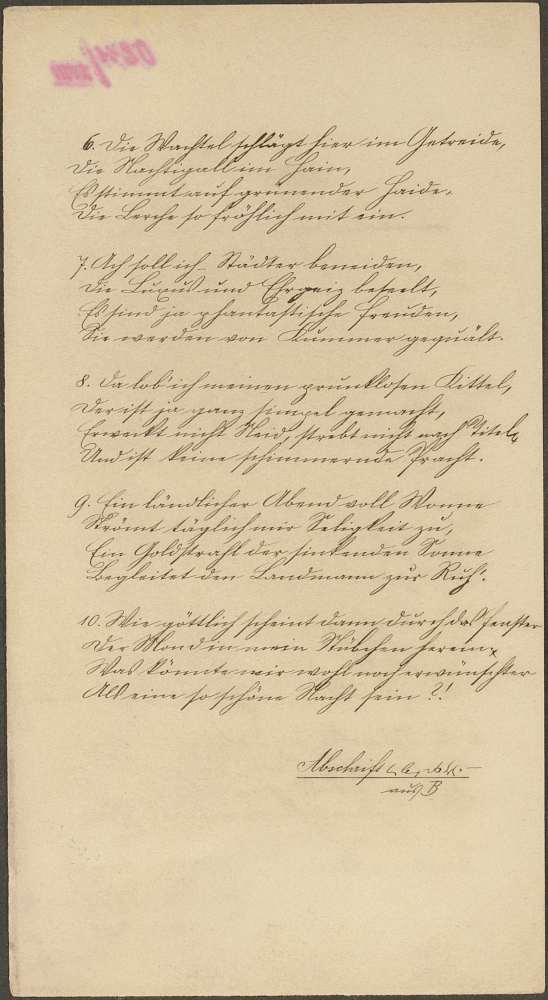 6. Die Wachtel schlägt hier im Getreide,
Die Nachtigall im Hain,
Es stimmt auf grünender Haide,
Die Lerche so fröhlich mit ein.
7. Ach soll ich Städter beneiden,
Die Luxus und Ehrgeiz beseelt,
Es sind ja phantastische Freuden,
Sie werden von Kummer gequält.
8. Da lob' ich meinen prunklosen Kittel,
Der ist ja ganz simpel gemacht,
Erweckt nicht Neid, strebt nicht nach Titel,
Und ist keine schimmernde Pracht.
9. Ein ländlicher Abend voll Wonne
Strömt täglich mir Seligkeit zu,
Ein Goldstrahl der sinkenden Sonne
Begleitet den Landmann zur Ruh'.
10. Wie göttlich scheint dann durch das Fenster
Der Mond in mein Stübchen herein,
Was könnte mir wohl noch erwünschter
Als eine so schöne Nacht sein?!
Abschrift
aus B